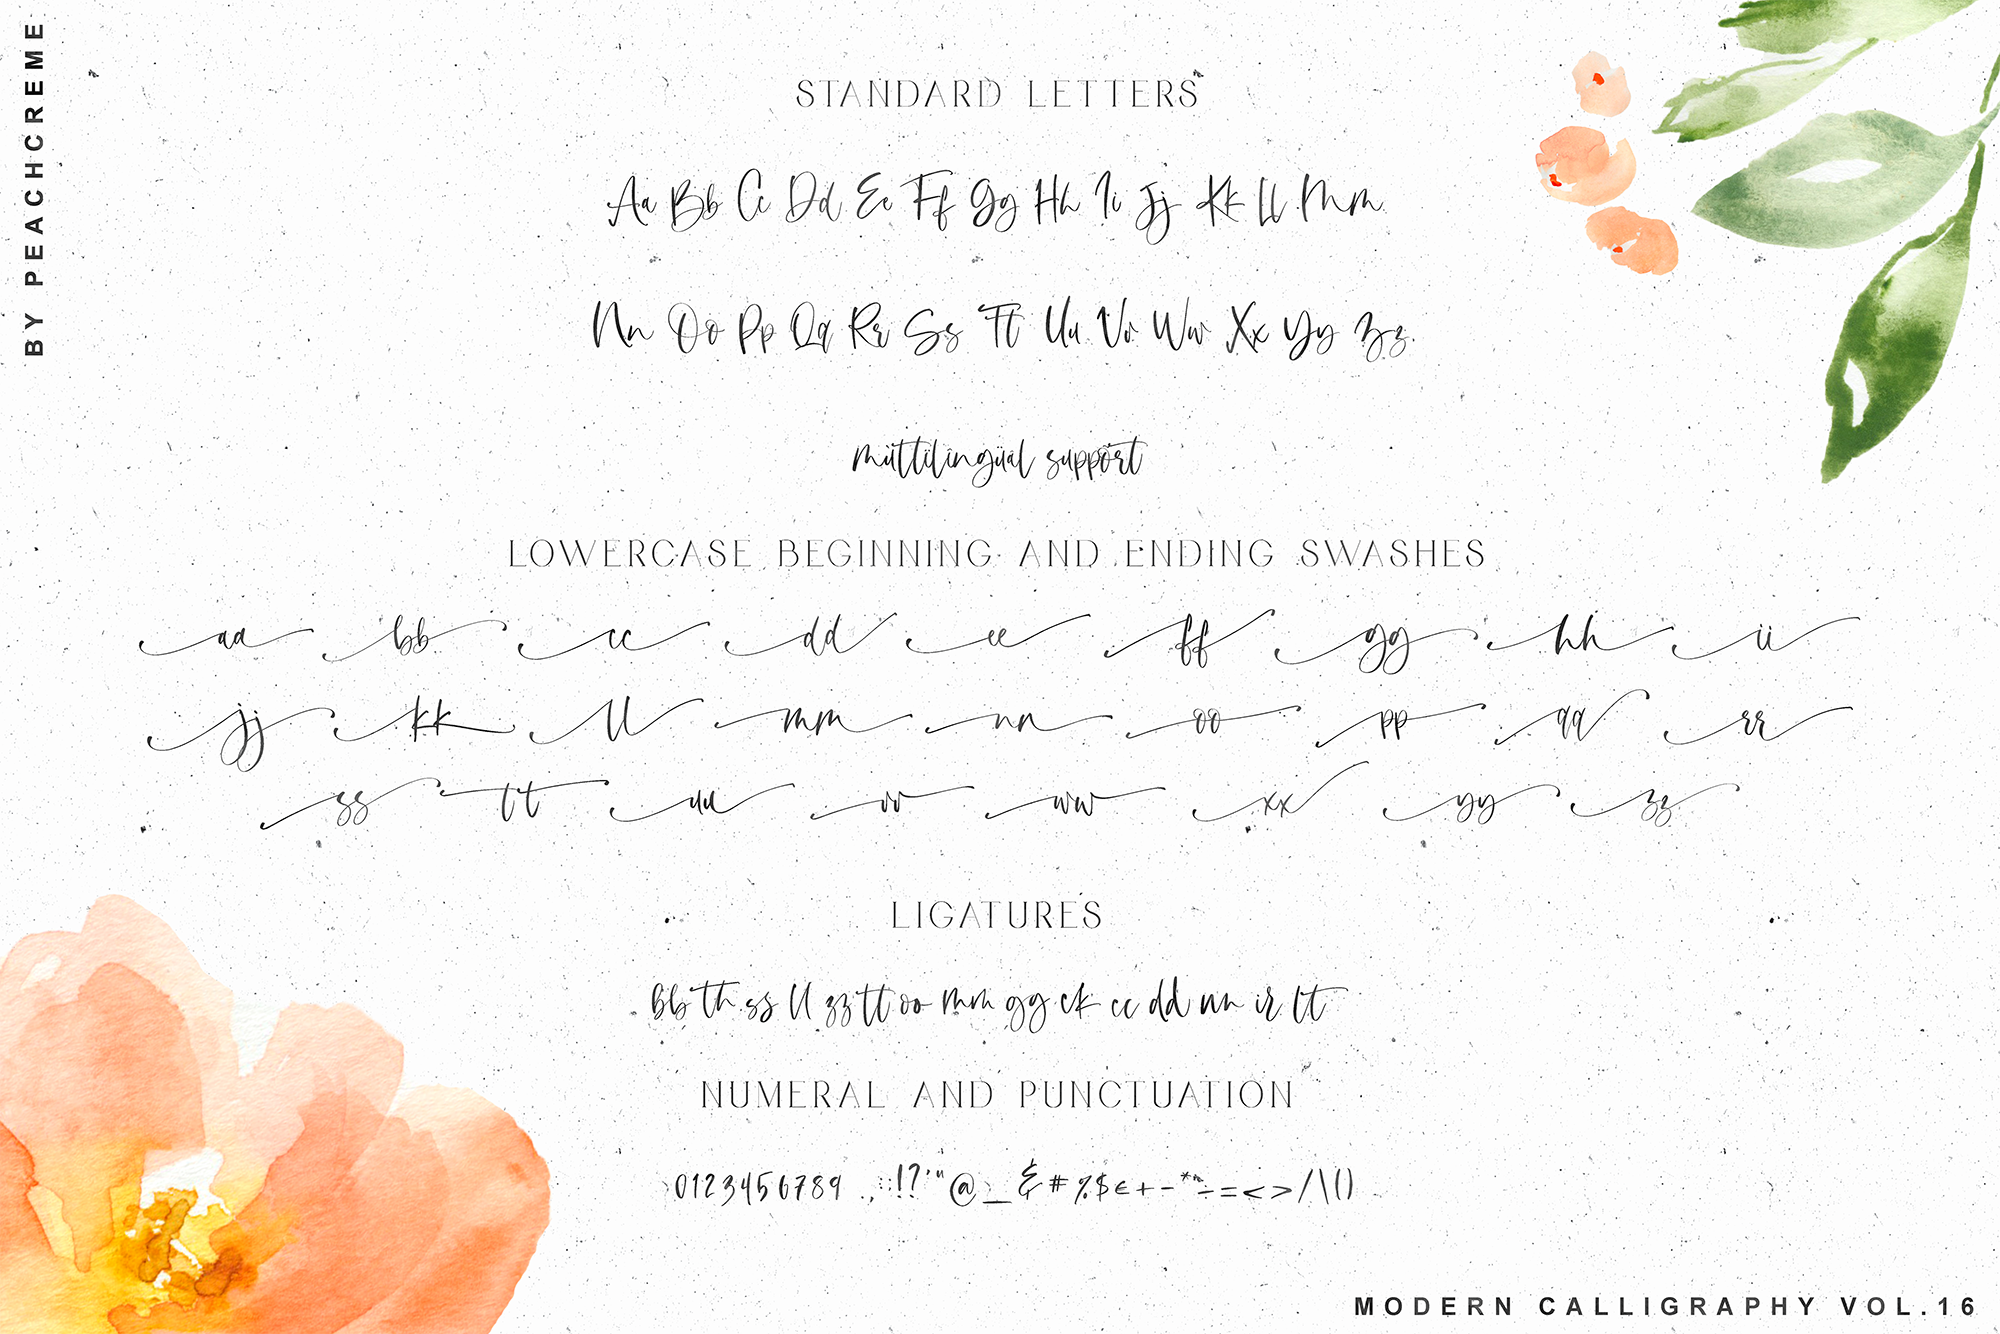 BY PEACHCREME
STANDARD LETTERS
Aa Bb Cc Dd Ee Ff Gg Hh Ii Jj Kk Ll Mm
Nn Oo Pp Qq Rr Ss Tt Uu Vv Ww Xx Yy Zz
müttilingüal süppört
LOWERCASE BEGINNING AND ENDING SWASHES
aa bb cc dd ee ff gg hh ii
jj kk ll mm nn oo pp qq rr
ss tt uu vv ww xx yy zz
LIGATURES
bb th ss ll zz tt oo mm gg ck cc dd nn ir lt
NUMERAL AND PUNCTUATION
0123456789 .,:;!?'"@_&#%$€+-*"÷=<>/\()
MODERN CALLIGRAPHY VOL.16